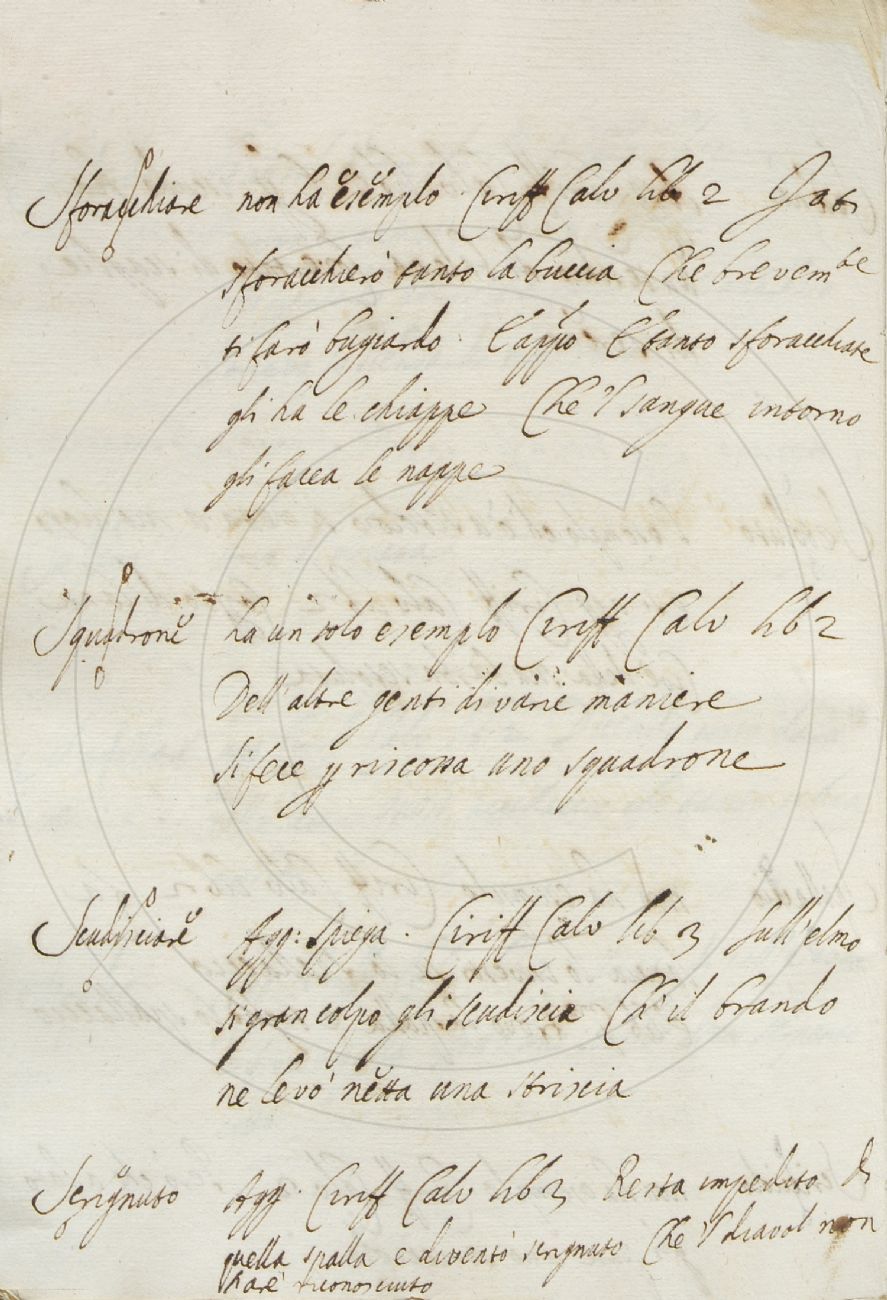 Sforacchiare non ha esemplo. Ciriff Calv lib 2 Jo ti
sforacchierò tanto la buccia Che brevem.te
ti farò bugiardo. E app.o E tanto sforacchiate
gli ha le chiappe Che 'l sangue intorno
gli facea le nappe
Squadrone ha un solo esemplo Ciriff Calv lib 2
Dell'altre genti di varie maniere
Si fece p riscossa uno squadrone
Scudisciare Agg: spiega. Ciriff Calv lib 3 Sull'elmo
sì gran colpo gli scudiscia Ch'il brando
ne levò netta una striscia
Scrignuto Agg. Ciriff Calv lib 3 Resta impedito di
quella spalla e diventò scrignuto Che 'l diavol non
harè riconosciuto